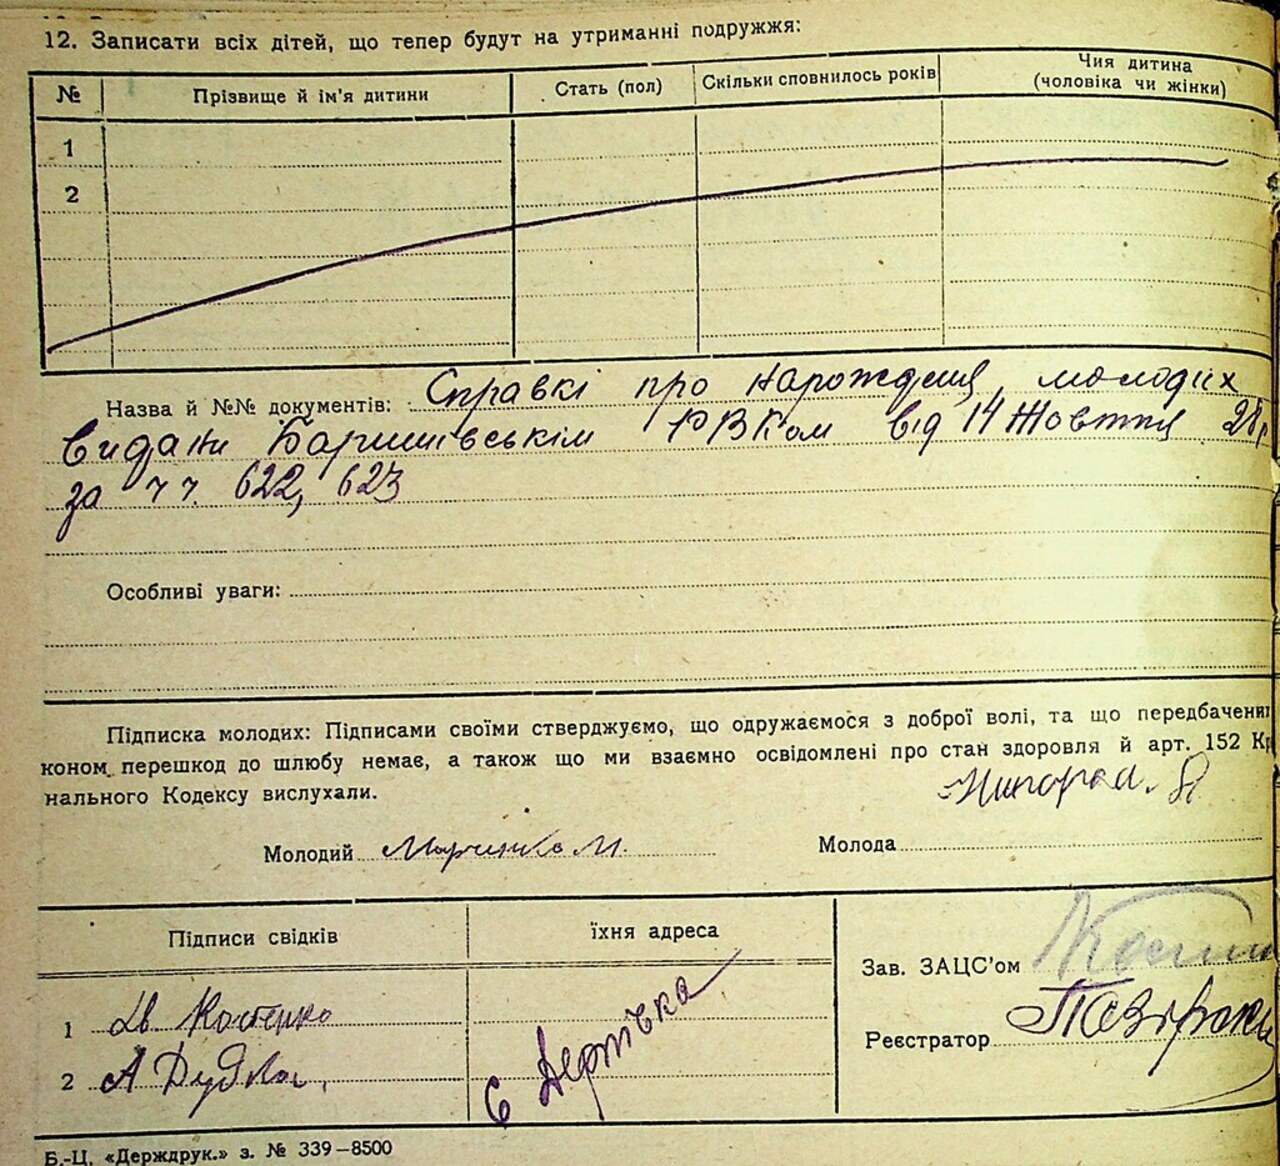 12. Записати всіх дітей, що тепер будут на утриманні подружжя:
№ Прізвище й ім'я дитини Стать (пол) Скільки сповнилось років Чия дитина (чоловіка чи жінки)
1
2
Назва й №№ документів: Справкі про нарождения молодих
видани Баришівськім РВКом від 14 Жовтня 28 р
за ч ч. 622, 623
Особливі уваги:
Підписка молодих: Підписами своїми стверджуємо, що одружаємося з доброї волі, та що передбачених
коном перешкод до шлюбу немає, а також що ми взаємно освідомлені про стан здоровля й арт. 152 Кр
нального Кодексу вислухали.
Молодий Марченко М. Молода
Підписи свідків їхня адреса
Зав. ЗАЦС'ом
1 Ів. Костенко
Реєстратор
2 А Дудка
с
Б.-Ц. «Держдрук.» з. № 339—8500